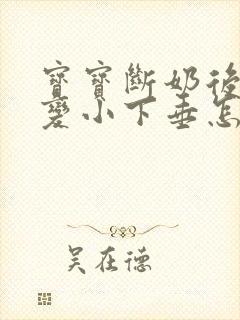 寶寶斷奶後
變小下垂怎
吳在德